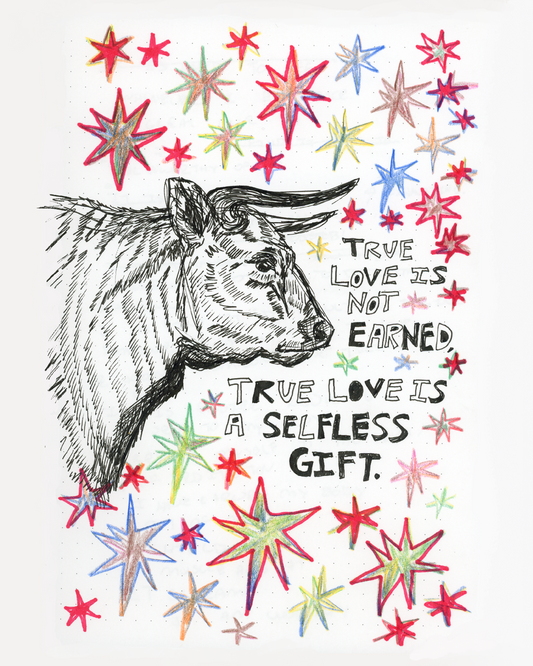 TRUE
LOVE IS
NOT
EARNED,
TRUE LOVE IS
A SELFLESS
GIFT.